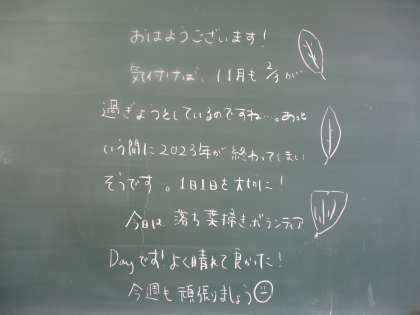 おはようございます!
気付けば、11月も2/3が
過ぎようとしているのですね…。あっと
いう間に2023年が終わってしまい
そうです。1日1日を大切に!
今日は、落ち葉掃きボランティア
Dayです!よく晴れて良かった!
今週も頑張りましょう